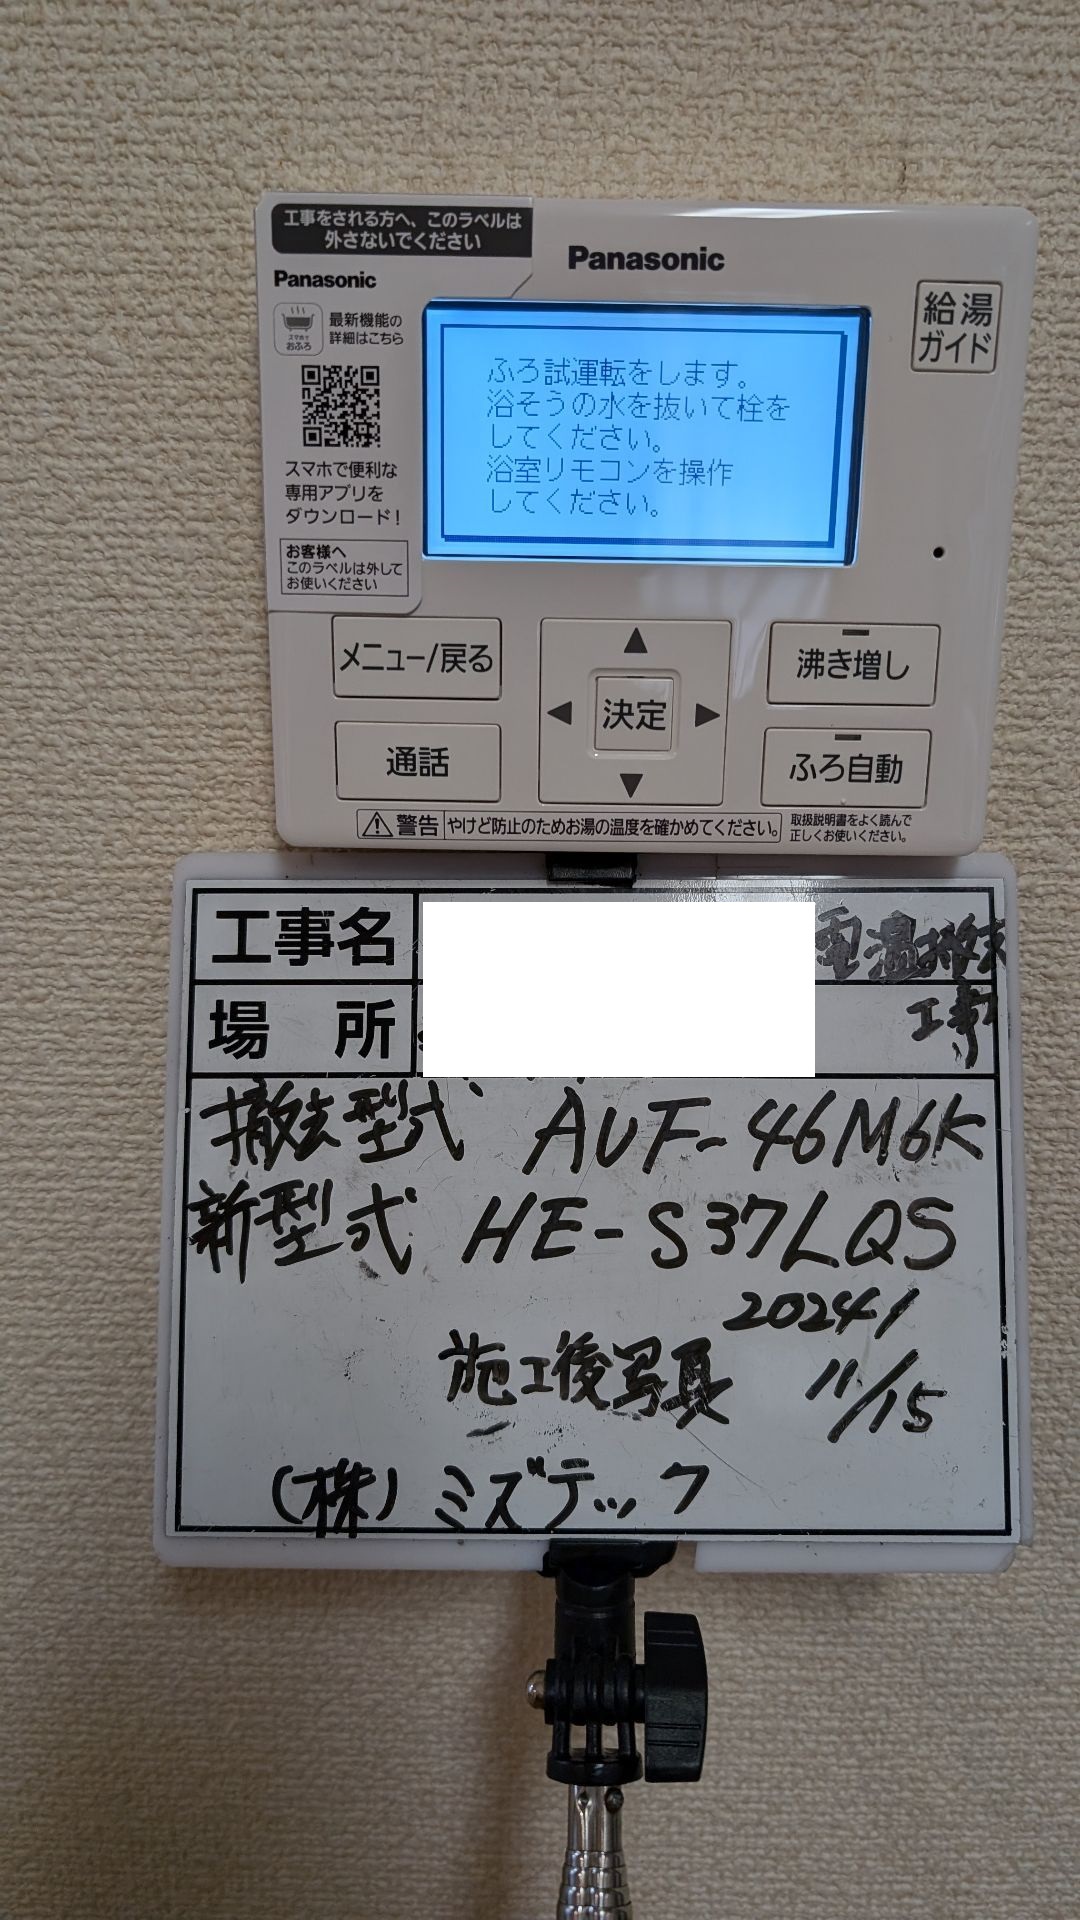 工事をされる方へ、このラベルは
外さないでください
Panasonic
Panasonic
最新機能の
詳細はこちら
スマホで
おふろ
スマホで便利な
専用アプリを
ダウンロード!
お客様へ
このラベルは外して
お使いください
給湯
ガイド
ふろ試運転をします。
浴そうの水を抜いて栓を
してください。
浴室リモコンを操作
してください。
メニュー/戻る
通話
決定
沸き増し
ふろ自動
警告 やけど防止のためお湯の温度を確かめてください。
取扱説明書をよく読んで
正しくお使いください。
工事名 電温撤去
工事
場所
撤去型式 AUF-46M6K
新型式 HE-S37LQS
2024/
施工後写真 11/15
(株)ミズテック